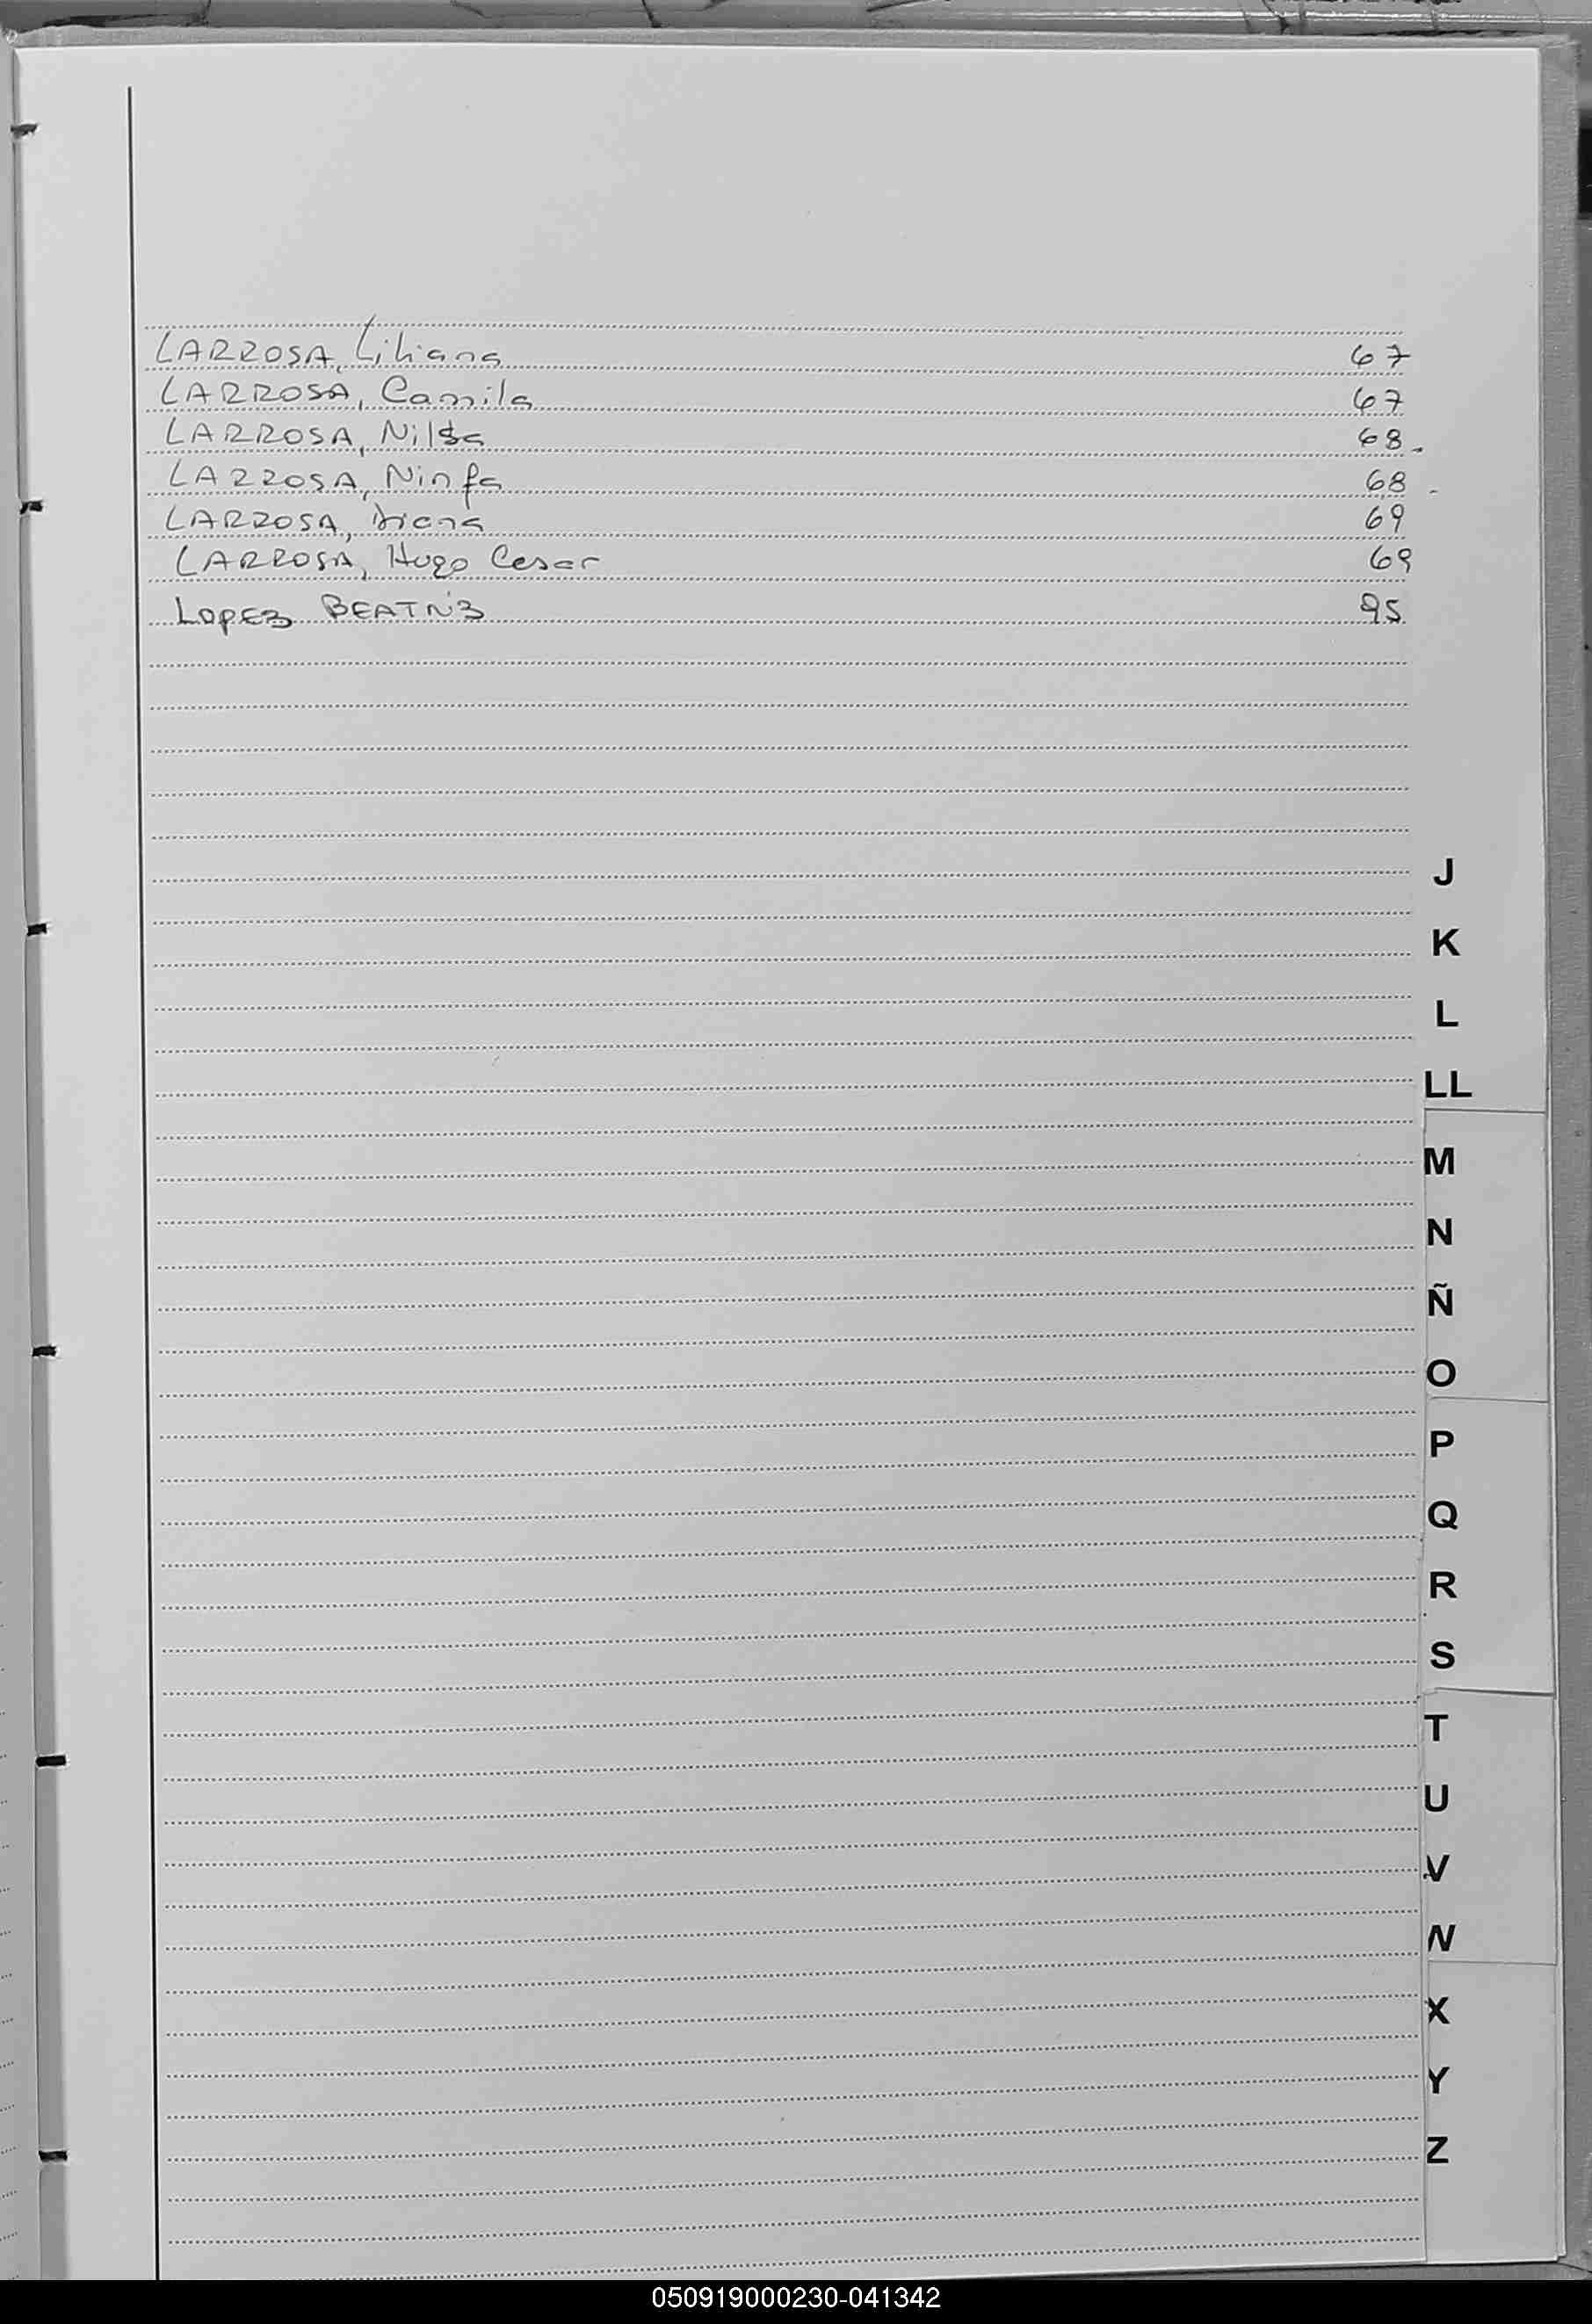 LARROSA, Liliana 67
LARROSA, Camila 67
LARROSA, Nilda 68.
LARROSA, Ninfa 68 -
LARROSA, 69
LARROSA, Hugo Cesar 69
LOPEZ BEATRIZ 95
J
K
L
LL
M
N
Ñ
O
P
Q
R
S
T
U
V
W
X
Y
Z
050919000230-041342